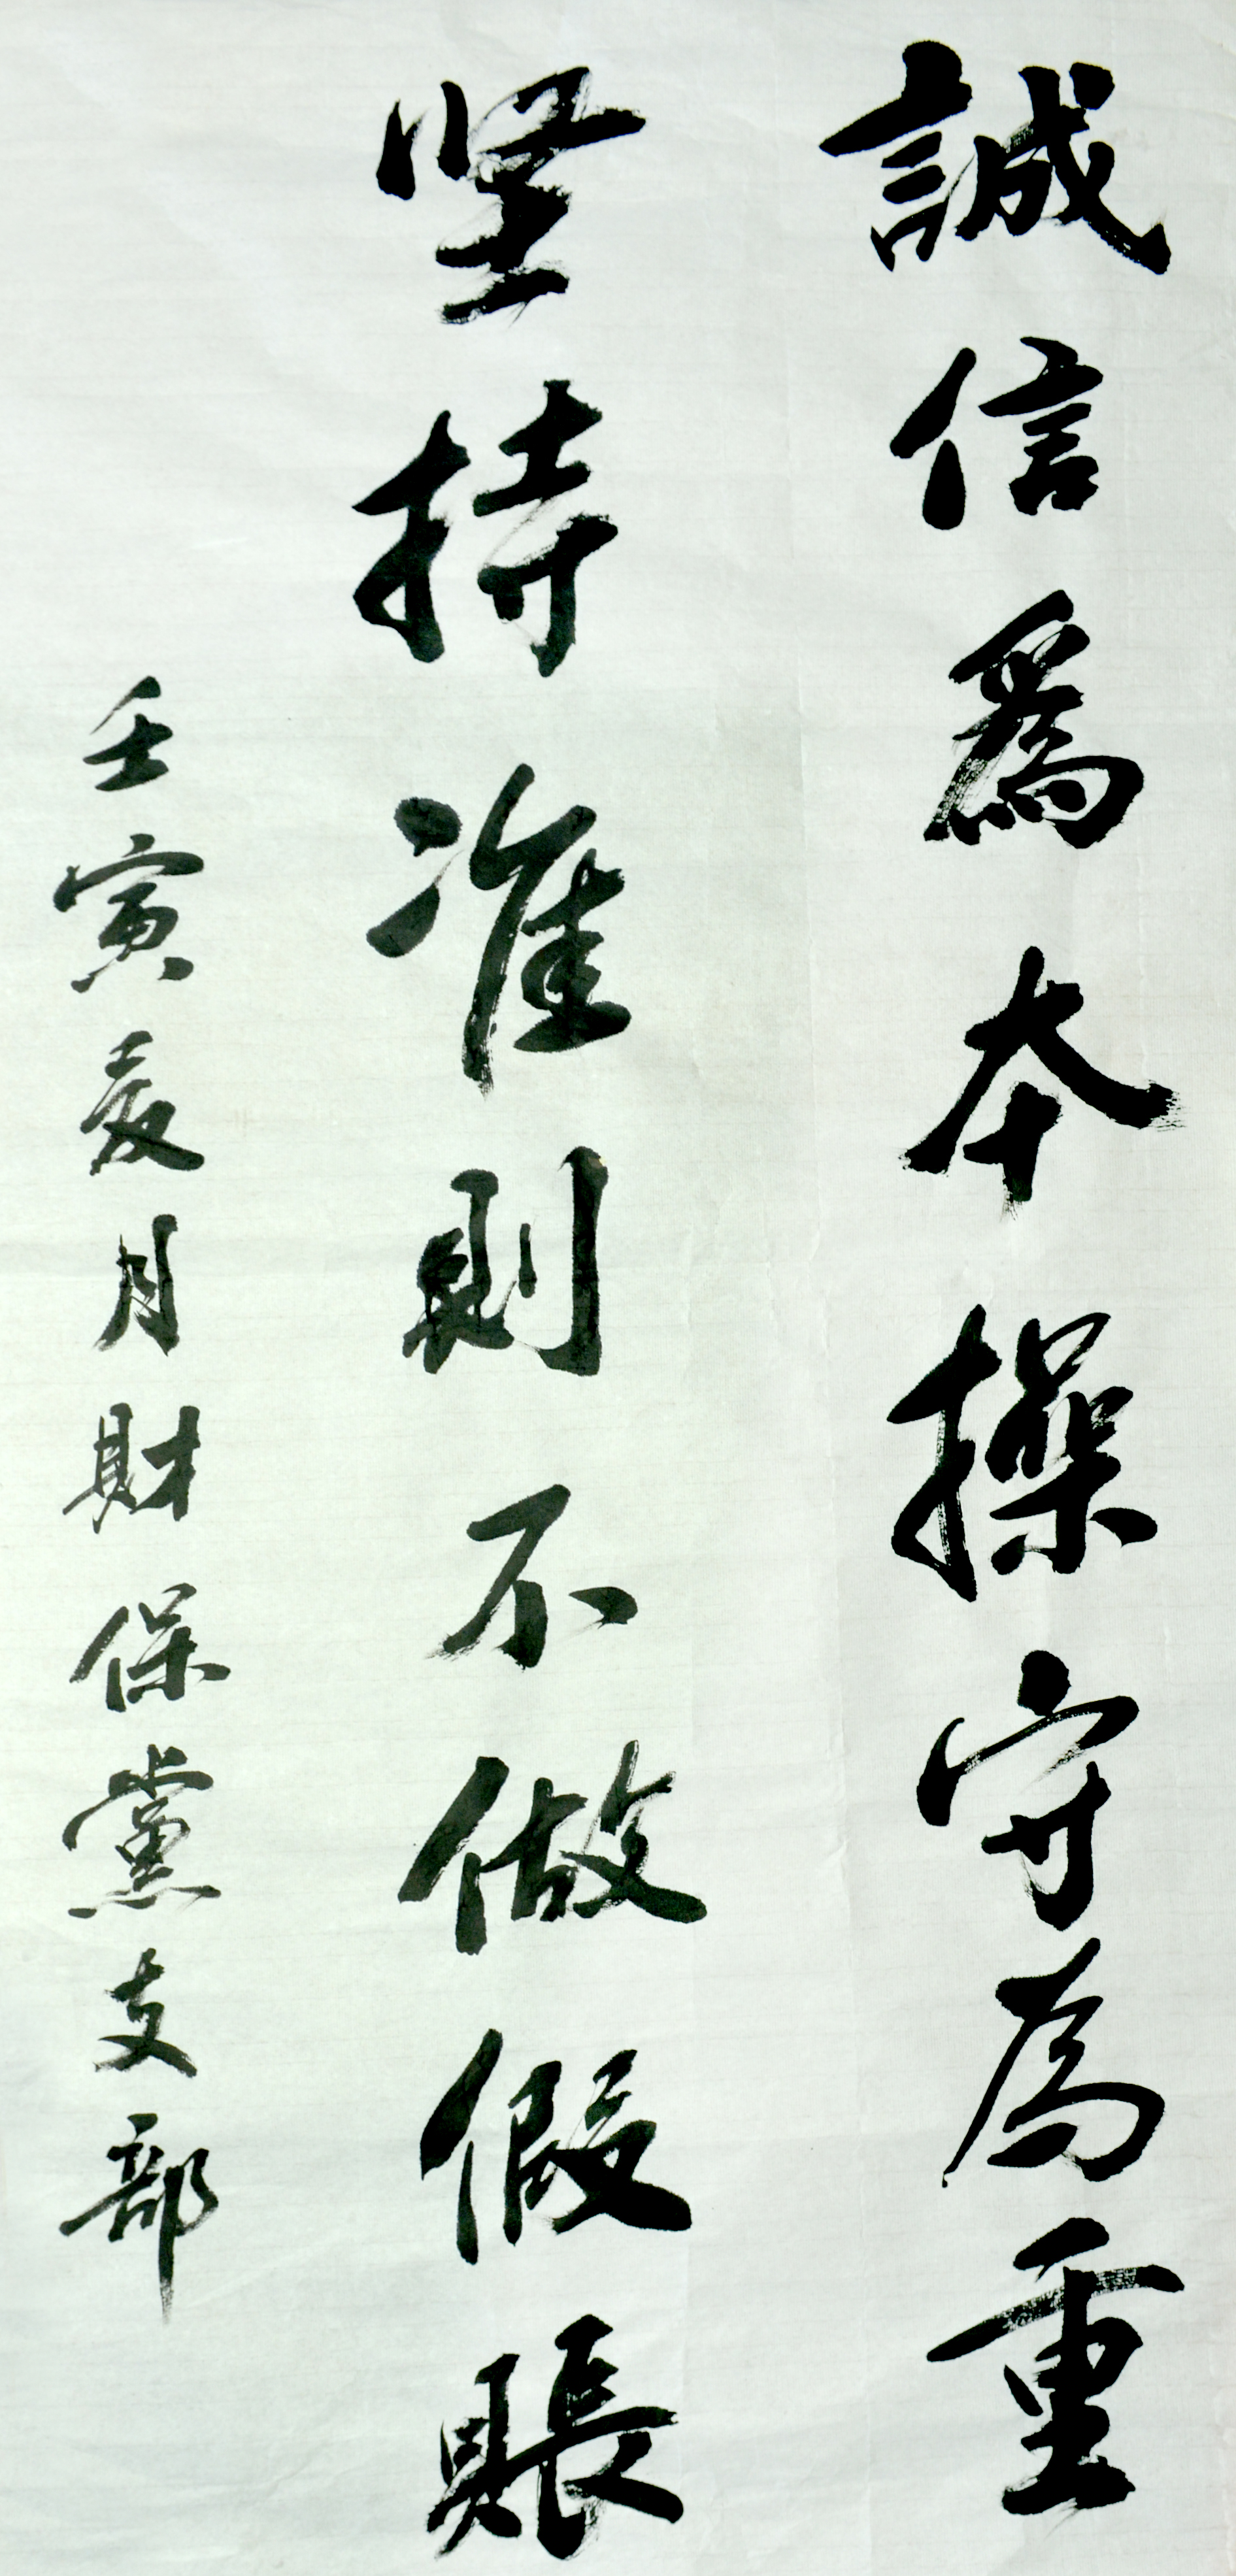 誠信爲本操守為重
坚持准则不做假賬
壬寅夏月財保黨支部